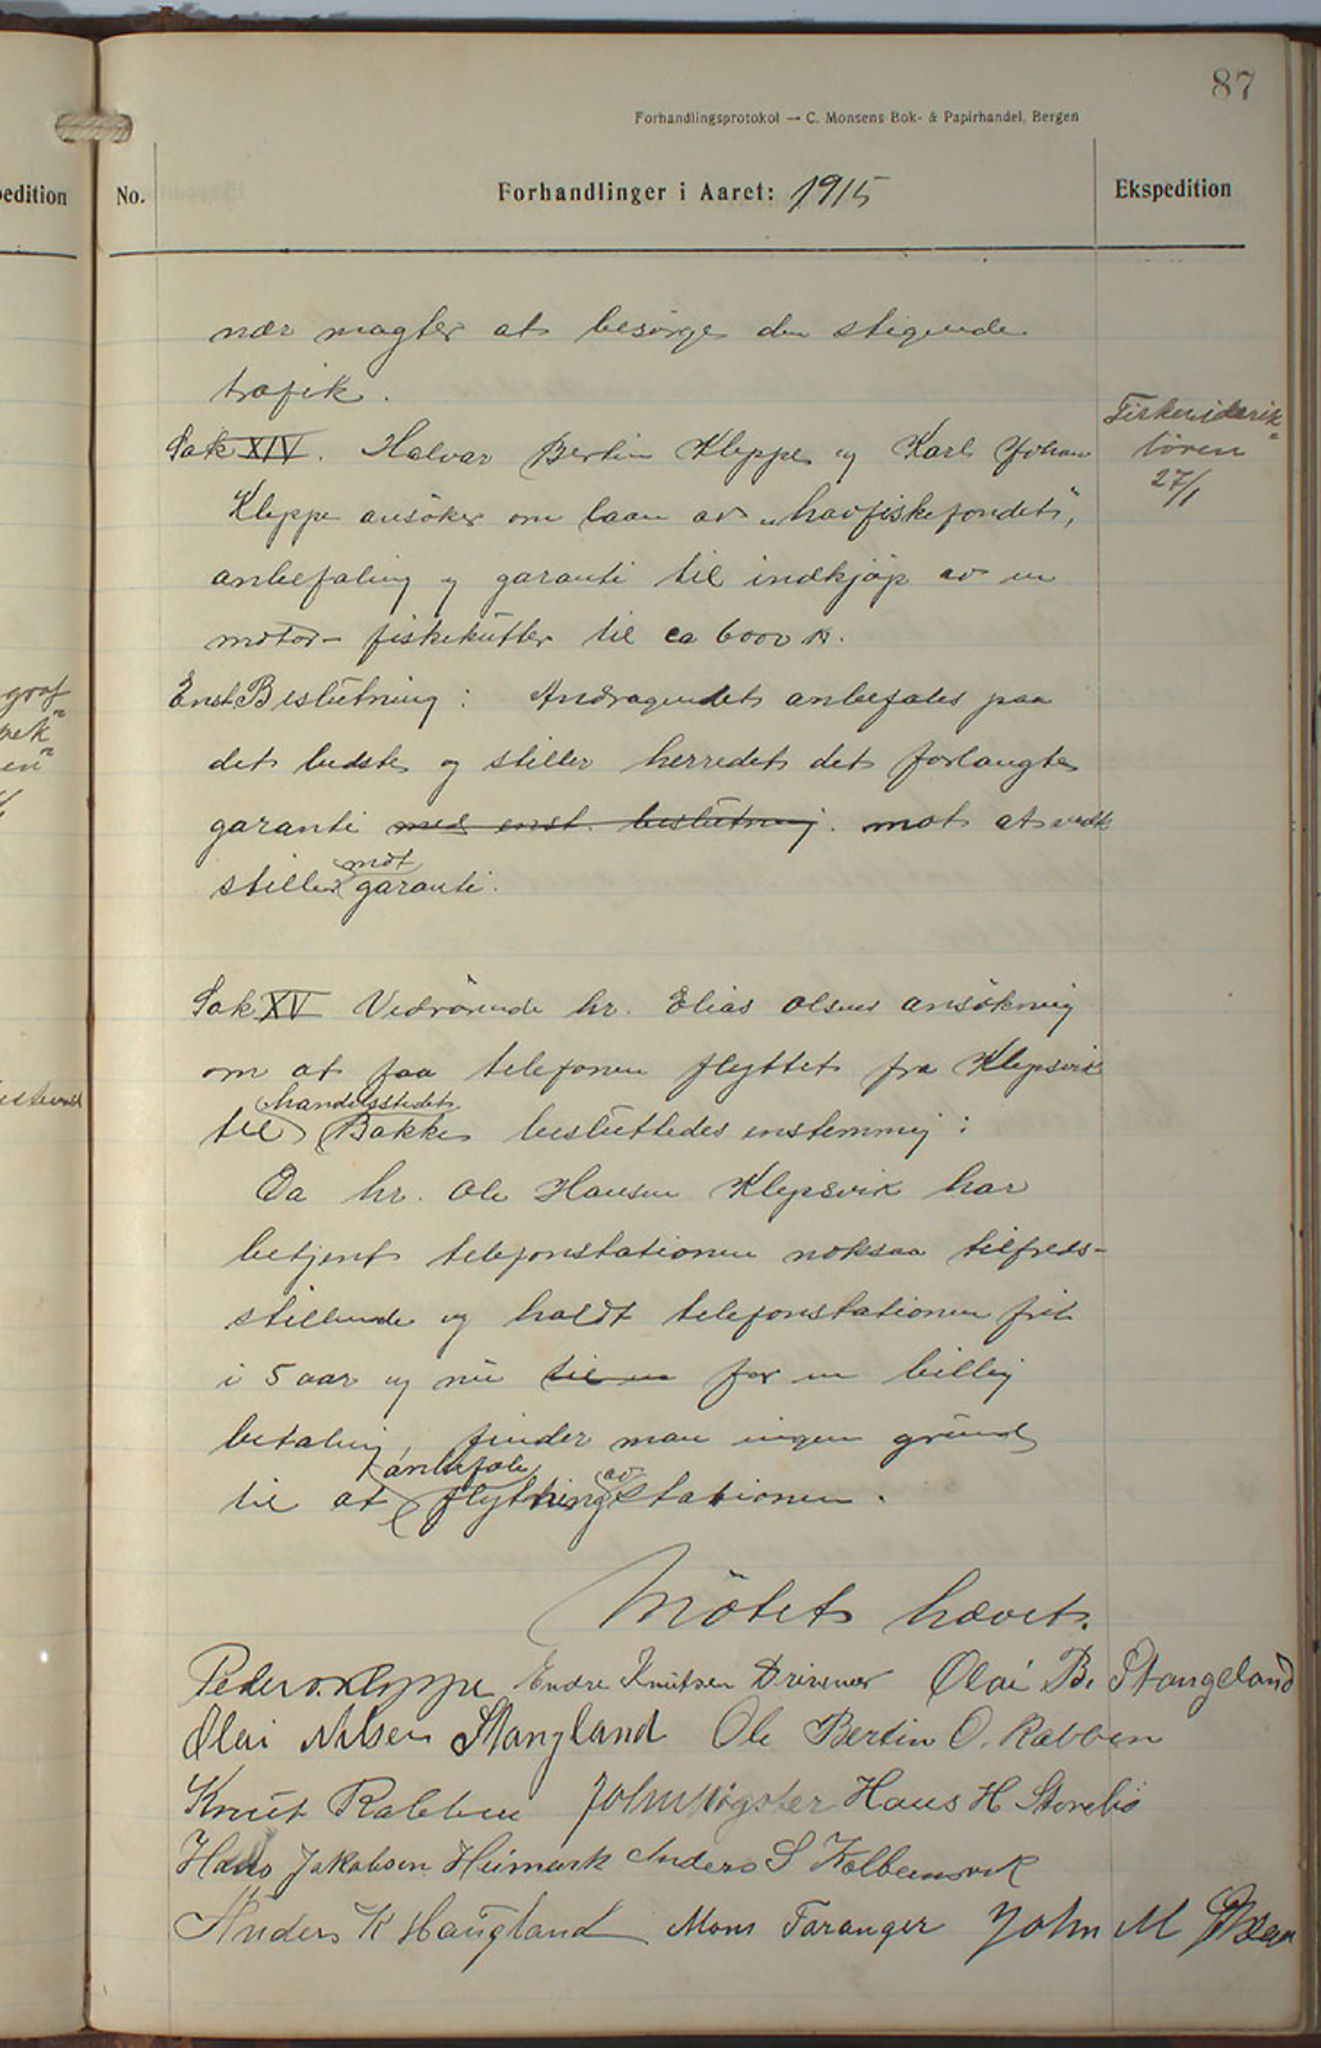 87
Forhandlingsprotokol — C. Monsens Bok- & Papirhandel, Bergen
pedition
No.
Forhandlinger i Aaret: 1915
Ekspedition
nær magter at besørge den stigende
trafik.
Sak XIV. Halvar Bertin Kleppe og Karl Johan
Kleppe ansöker om laan av „havfiskefondet",
anbefaling og garanti til indkjöp av en
motor- fiskekutter til ca 6000 kr.
Fiskeridirik=
tören
27/1
Enst. Beslutning: Andragendet anbefales paa
det bedste og stiller herredet det forlangte
garanti med enst. beslutning. mot at vedk
stiller mot garanti.
Sak XV Vedrörende hr. Elias Olsens ansökning
om at faa telefonen flyttet fra Klepsvik
til handelsstedet Bakke besluttedes enstemmig:
Da hr. Ole Hansen Klepsvik har
betjent telefonstationen noksaa tilfreds-
stillende og holdt telefonstationen frit
i 5 aar og nu til en for en billig
betaling, finder man ingen grund
til at anbefale flytning av stationen.
Mötet hævet.
Peder O. Kleppe Endre Knutsen Drivenes Olai B. Stangeland
Olai Nilsen Stangland Ole Bertin O. Rabben
Knut Rabben John Møgster Hans H Storebö
Hans Jakobsen Heimark Anders S Kolbeinsvik
Anders K Haugland Mons Taranger John M